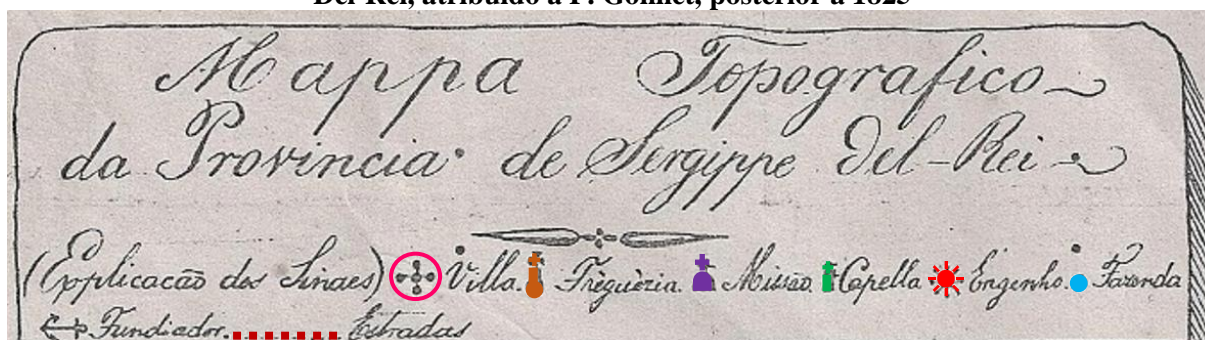 Del Rei, atribuído a P. Gonnet, posterior a 1823
Mappa Topografico
da Provincia de Sergippe Del-Rei
(Explicacão dos Sinaes) Villa. Frèguèzia. Missão. Capella Engenho. Fazenda
Fundiador. Estradas